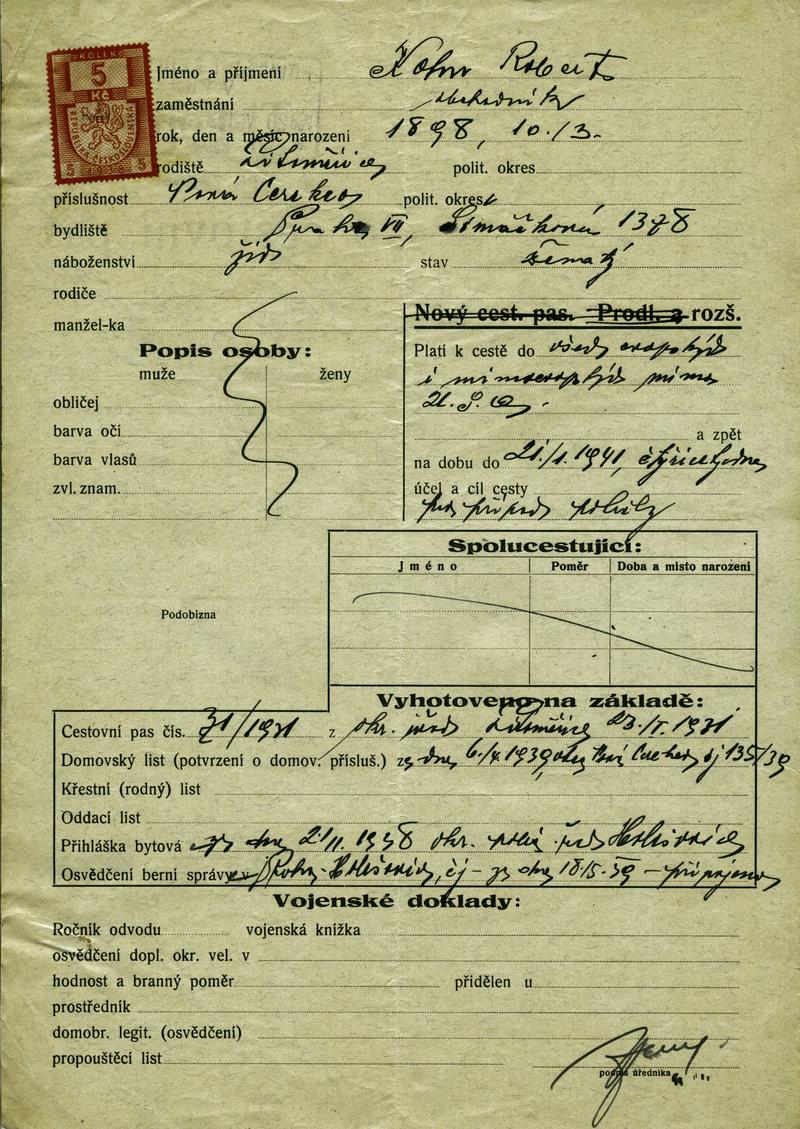 KOLEK
5
Kč
REPUBLIKA ČESKOSLOVENSKÁ
5 1938 5
Jméno a příjmení Kohn Robert
zaměstnání obchodník
rok, den a měsíc narození 1898, 10./3.
rodiště Litoměřice polit. okres
příslušnost Nová Cerekev polit. okres
bydliště Praha VII, Šimáčkova 1378
náboženství žid stav ženatý
rodiče
manžel-ka
Nový cest. pas. Prodl. a rozš.
Popis osoby:
muže ženy
obličej
barva očí
barva vlasů
zvl. znam.
Platí k cestě do všech evropských
i mimoevropských mimo
a zpět
na dobu do 21./1. 1941,
účel a cíl cesty
pobyty
Spolucestující:
Jméno Poměr Doba a místo narození
Podobizna
Vyhotoveno na základě:
Cestovní pas čís. 71/1931 z okr. úřad Litoměřice 23./V. 1931
Domovský list (potvrzení o domov. přísluš.) ze dne 6./4. 1939 čj 135/39
Křestní (rodný) list
Oddací list
Přihláška bytová ze dne 21/11. 1938 okr. úřad Holešovice
Osvědčení berní správy Praha-Holešovice, čj – ze dne 18.5.39 – připojeno
Vojenské doklady:
Ročník odvodu vojenská knížka
osvědčení dopl. okr. vel. v
hodnost a branný poměr přidělen u
prostředník
domobr. legit. (osvědčení)
propouštěcí list
podpis úředníka